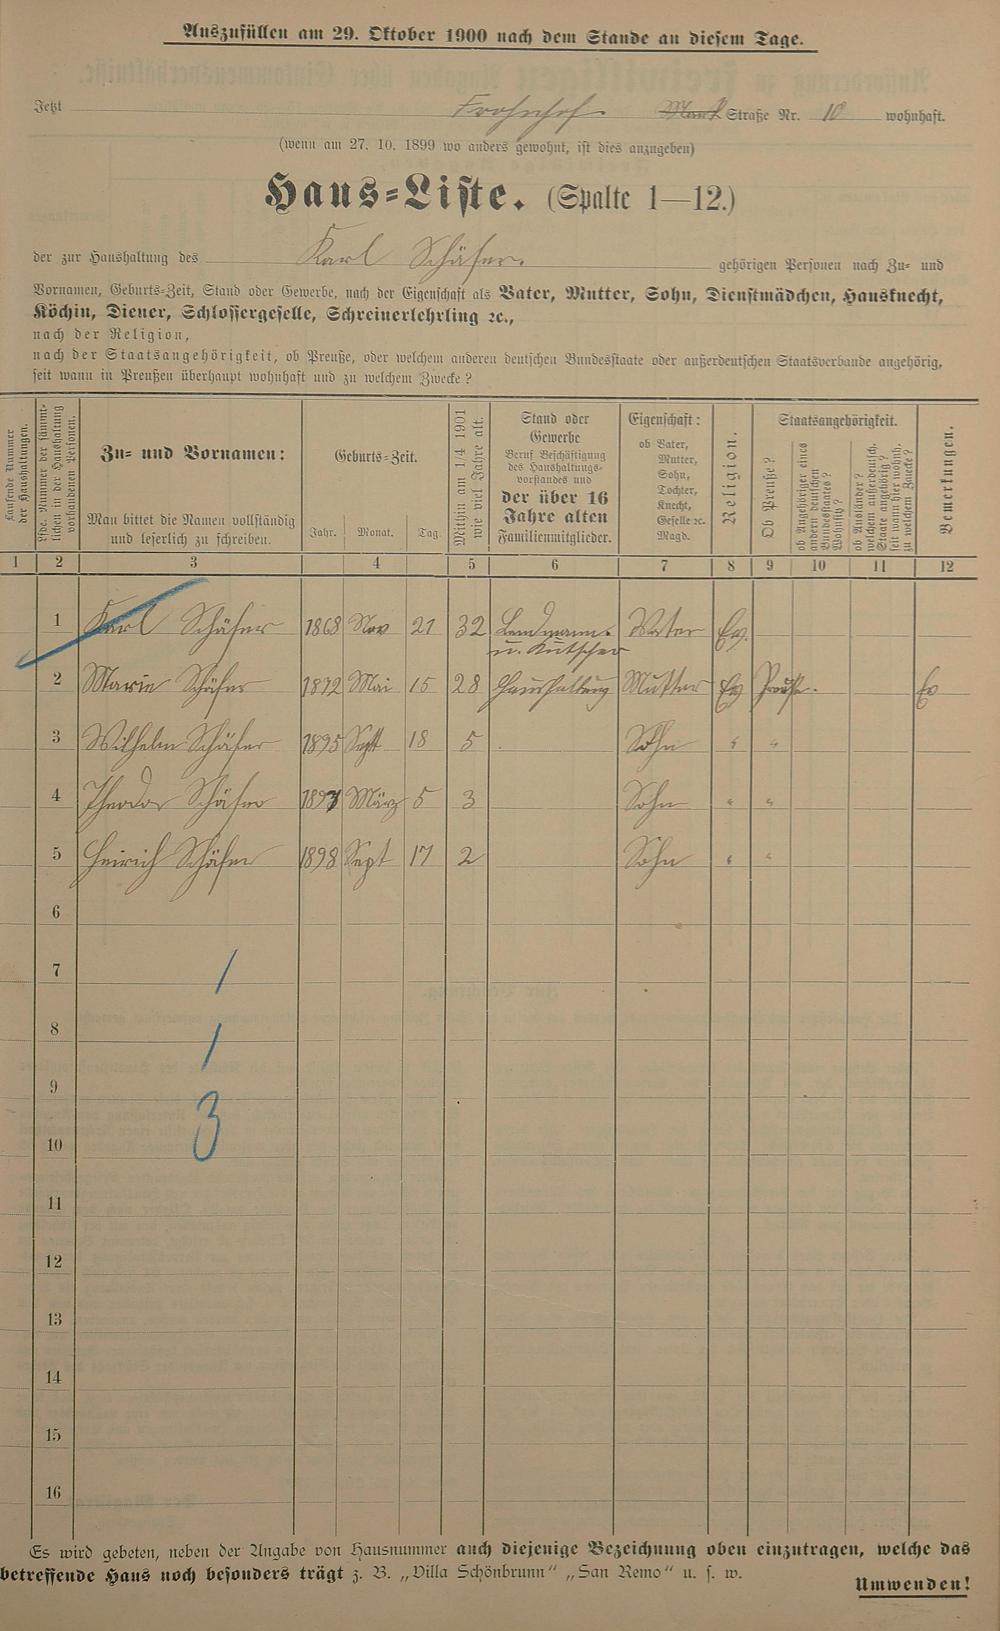 Auszufüllen am 29. Oktober 1900 nach dem Stande an diesem Tage.
Jetzt Frohnhof Straße Nr. 10 wohnhaft.
(wenn am 27. 10. 1899 wo anders gewohnt, ist dies anzugeben)
Haus=Liste. (Spalte 1—12.)
der zur Haushaltung des Karl Schäfer. gehörigen Personen nach Zu= und
Vornamen, Geburts=Zeit, Stand oder Gewerbe, nach der Eigenschaft als Vater, Mutter, Sohn, Dienstmädchen, Hausknecht,
Köchin, Diener, Schlossergeselle, Schreinerlehrling ꝛc.,
nach der Religion,
nach der Staatsangehörigkeit, ob Preuße, oder welchem anderen deutschen Bundesstaate oder außerdeutschen Staatsverbande angehörig,
seit wann in Preußen überhaupt wohnhaft und zu welchem Zwecke?
Laufende Nummer
der Haushaltungen.
Lfde. Nummer der sämmt=
lichen in der Haushaltung
vorhandenen Personen.
Zu= und Vornamen:
Man bittet die Namen vollständig
und leserlich zu schreiben.
Geburts=Zeit.
Jahr. Monat. Tag.
Mithin am 1/4 1901
wie viel Jahre alt.
Stand oder
Gewerbe
Beruf Beschäftigung
des Haushaltungs=
vorstandes und
der über 16
Jahre alten
Familienmitglieder.
Eigenschaft:
ob Vater,
Mutter,
Sohn,
Tochter,
Knecht,
Geselle ꝛc.
Magd.
Religion.
Staatsangehörigkeit.
Ob Preuße?
ob Angehöriger eines
andern deutschen
Bundesstaates?
Wohnitz?
ob Ausländer?
welchem außerdeutsch.
Staate angehörig?
seit wann hier wohnh.
zu welchem Zwecke?
Bemerkungen.
1 2 3 4 5 6 7 8 9 10 11 12
1 Karl Schäfer 1868 Nov 21 32 Landmann. Vater Ev.
u. Kutscher
2 Marie Schäfer 1872 Mai 15 28 Haushaltung Mutter Ev Preuße. Ev
3 Wilhelm Schäfer 1895 Sept 18 5 Sohn " "
4 Theodor Schäfer 1897 März 5 3 Sohn " "
5 Heirich Schäfer 1898 Sept 17 2 Sohn " "
6
7 1
8 1
9
3
10
11
12
13
14
15
16
Es wird gebeten, neben der Angabe von Hausnummer auch diejenige Bezeichnung oben einzutragen, welche das
betreffende Haus noch besonders trägt z. B. „Villa Schönbrunn“ „San Remo“ u. s. w.
Umwenden!